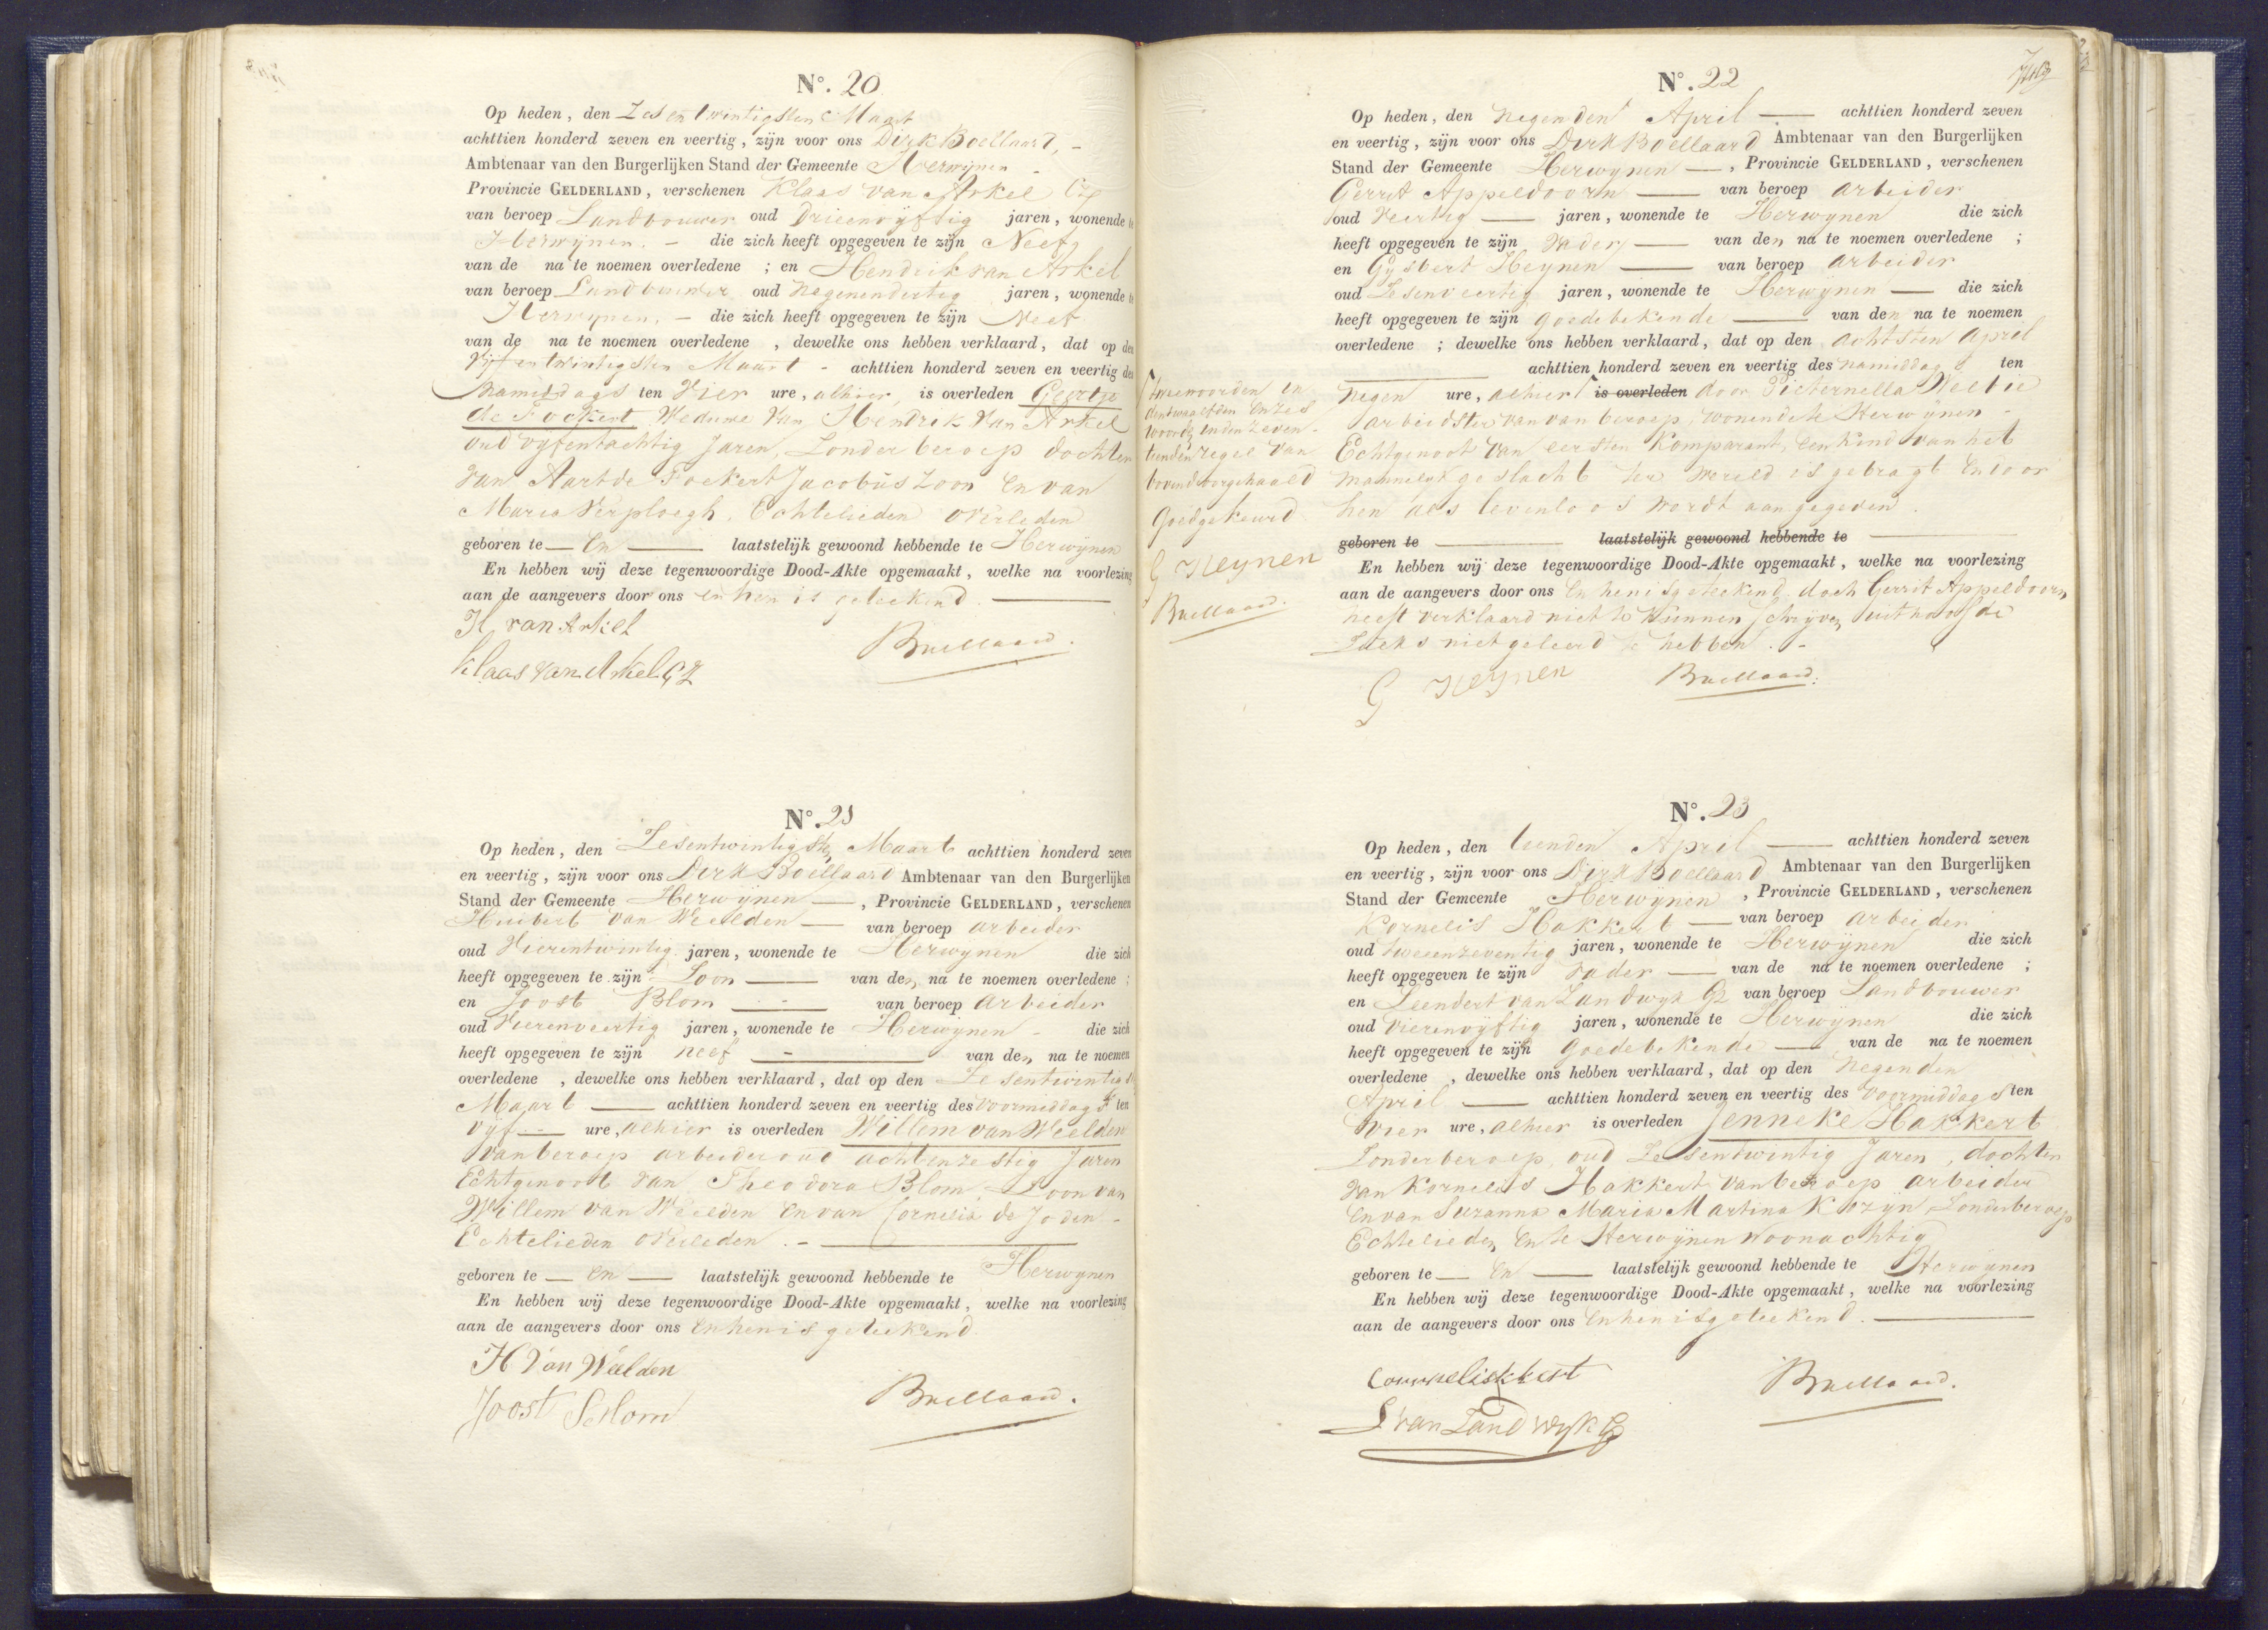 N°. 20
Op heden, den Zesentwintigsten Maart
achttien honderd zeven en veertig, zijn voor ons Dirk Boellaard, -
Ambtenaar van den Burgerlijken Stand der Gemeente Herwijnen -
Provincie GELDERLAND, verschenen Klaas van Arkel Cz
van beroep Landbouwer oud Drieenvyftig jaren, wonende te
Herwijnen. - die zich heeft opgegeven te zijn Neef
van de na te noemen overledene ; en Hendrik van Arkel
van beroep Landbouwer oud Negenendertig jaren, wonende te
Herwynen. - die zich heeft opgegeven te zijn Neef
van de na te noemen overledene , dewelke ons hebben verklaard, dat op den
Vijfentwintigsten Maart - achttien honderd zeven en veertig des
Namiddags ten Vier ure, alhier, is overleden Geertje
de Fockert Weduwe Van Hendrik Van Arkel
oud vyfentachtig Jaren, Zonder beroep dochter
van Aart de Fockert Jacobus Zoon En van
Maria Verploegh, Echtelieden overleden
geboren te — En — laatstelijk gewoond hebbende te Herwijnen
En hebben wij deze tegenwoordige Dood-Akte opgemaakt, welke na voorlezing
aan de aangevers door ons en hen is geteekend. —
H van Arkel
Boellaard.
Klaas van Arkel Cz
N°. 21
Op heden, den Zesentwintigsten Maart achttien honderd zeven
en veertig, zijn voor ons Dirk Boellaard Ambtenaar van den Burgerlijken
Stand der Gemeente Herwijnen —, Provincie GELDERLAND, verschenen
Huibert van Weelden — van beroep arbeider
oud Vierentwintig jaren, wonende te Herwynen die zich
heeft opgegeven te zijn Zoon — van den na te noemen overledene ;
en Joost Blom — van beroep arbeider
oud Vierenveertig jaren, wonende te Herwijnen - die zich
heeft opgegeven te zijn neef — van den na te noemen
overledene , dewelke ons hebben verklaard, dat op den Zesentwintigst
Maart — achttien honderd zeven en veertig des voormiddags ten
Vyf — ure, alhier is overleden Willem van Weelden
van beroep arbeider oud achtenzestig Jaren
Echtgenoot van Theodora Blom, Zoon van
Willem van Weelden En van Cornelia de Joden -
Echtelieden overleden. —
geboren te — En — laatstelijk gewoond hebbende te Herwynen
En hebben wij deze tegenwoordige Dood-Akte opgemaakt, welke na voorlezing
aan de aangevers door ons En hen is geteekend
H Van Weelden
Boellaard.
Joost Blom
N°. 22
Op heden, den Negenden April — achttien honderd zeven
en veertig, zijn voor ons Dirk Boellaard Ambtenaar van den Burgerlijken
Stand der Gemeente Herwynen —, Provincie GELDERLAND, verschenen
Gerrit Appeldoorn — van beroep arbeider
oud Veertig — jaren, wonende te Herwynen die zich
heeft opgegeven te zijn Vader — van den na te noemen overledene ;
en Gysbert Heynen — van beroep arbeider
oud Zesenveertig jaren, wonende te Herwynen — die zich
heeft opgegeven te zijn goedebekende — van den na te noemen
overledene ; dewelke ons hebben verklaard, dat op den achtsten April
— achttien honderd zeven en veertig des namiddags ten
negen ure, alhier is overleden door Pieternella Weltie
arbeidster van van beroep, wonende te Herwijnen -
Echtgenoot van eersten Komparant, een kind van het
mannelyk geslacht ter wereld is gebragt en door
hen als levenloos wordt aangegeven.
geboren te — laatstelijk gewoond hebbende te —
En hebben wij deze tegenwoordige Dood-Akte opgemaakt, welke na voorlezing
aan de aangevers door ons En hen is geteekend, doch Gerrit Appeldoorn
heeft verklaard niet te Kunnen schryven uit hoofde
Zulks niet geleerd te hebben. -
G Heynen
Boellaard.
twee woorden in
den twaalfden en zes
woorden in den zeven-
tienden regel van
bovend doorgehaald
Goedgekeurd
G Heynen
Boellaard.
N°. 23
Op heden, den tienden April — achttien honderd zeven
en veertig, zijn voor ons Dirk Boellaard Ambtenaar van den Burgerlijken
Stand der Gemeente Herwijnen, Provincie GELDERLAND, verschenen
Kornelis Hakkert — van beroep arbeider
oud tweeenzeventig jaren, wonende te Herwijnen die zich
heeft opgegeven te zijn Vader — van de na te noemen overledene ;
en Leendert van Zandwyk Gz van beroep Landbouwer
oud Vierenvyftig jaren, wonende te Herwijnen die zich
heeft opgegeven te zijn Goedebekende — van de na te noemen
overledene , dewelke ons hebben verklaard, dat op den Negenden
April — achttien honderd zeven en veertig des voormiddags ten
Vier ure, alhier is overleden Jenneke Hakkert
Zonder beroep, oud Zesentwintig Jaren, dochter
van Kornelis Hakkert van beroep arbeider
En van Suzanna Maria Martina Kozyn, Zonder beroep
Echtelieden En te Herwijnen woonachtig
geboren te — En — laatstelijk gewoond hebbende te Herwynen
En hebben wij deze tegenwoordige Dood-Akte opgemaakt, welke na voorlezing
aan de aangevers door ons En hen is geteekend. —
Boellaard.
L van Zandwyk Gz